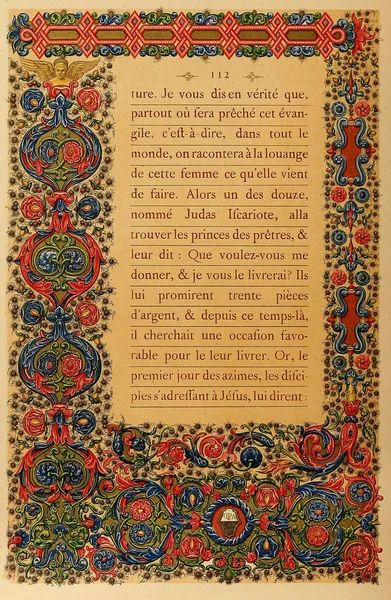 112
ture. Je vous dis en vérité que,
partout où ſera prêché cet évan-
gile, c'eſt-à-dire, dans tout le
monde, on racontera à la louange
de cette femme ce qu'elle vient
de faire. Alors un des douze,
nommé Judas Iſcariote, alla
trouver les princes des prêtres, &
leur dit : Que voulez-vous me
donner, & je vous le livrerai? Ils
lui promirent trente pièces
d'argent, & depuis ce temps-là,
il cherchait une occaſion favo-
rable pour le leur livrer. Or, le
premier jour des azimes, les diſci-
ples s'adreſſant à Jéſus, lui dirent :